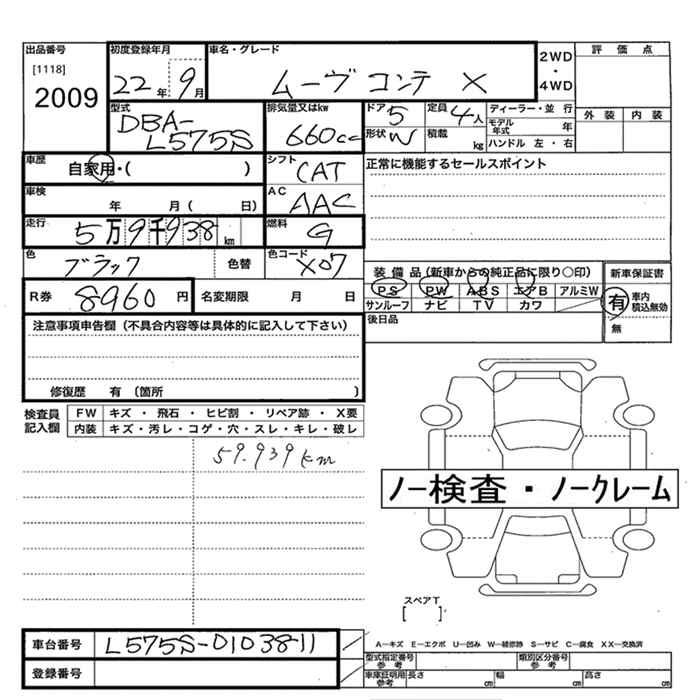 出品番号 初度登録年月 車名・グレード 2WD 評価点
[1118] ・
2009 22年 9月 ムーヴコンテ X 4WD
外装 内装
型式 排気量又はkw ドア 5 定員 4人 ディーラー・並行
DBA- 660cc 形状 積載 kg モデル年式 年
L575S ハンドル 左・右
車歴 自家用・( ) シフト CAT 正常に機能するセールスポイント
車検 年 月( 日) AC AAC
走行 5万9千938km 燃料 G
色 ブラック 色替 色コード X07 装備品(新車からの純正品に限り○印) 新車保証書
PS PW ABS エアB アルミW 有 車内積込無効
R券 8960円 名変期限 月 日 サンルーフ ナビ TV カワ 無
注意事項申告欄(不具合内容等は具体的に記入して下さい) 後日品
修復歴 有(箇所 )
検査員記入欄 FW キズ・飛石・ヒビ割・リペア跡・X要
内装 キズ・汚レ・コゲ・穴・スレ・キレ・破レ
59.939km
ノー検査・ノークレーム
スペアT
[ ]
車台番号 L575S-0103811 A―キズ E―エクボ U―凹み W―補修跡 S―サビ C―腐食 XX―交換済
型式指定番号 参考 類別区分番号 参考
登録番号 車庫証明用 参考 長さ cm 幅 cm 高さ cm